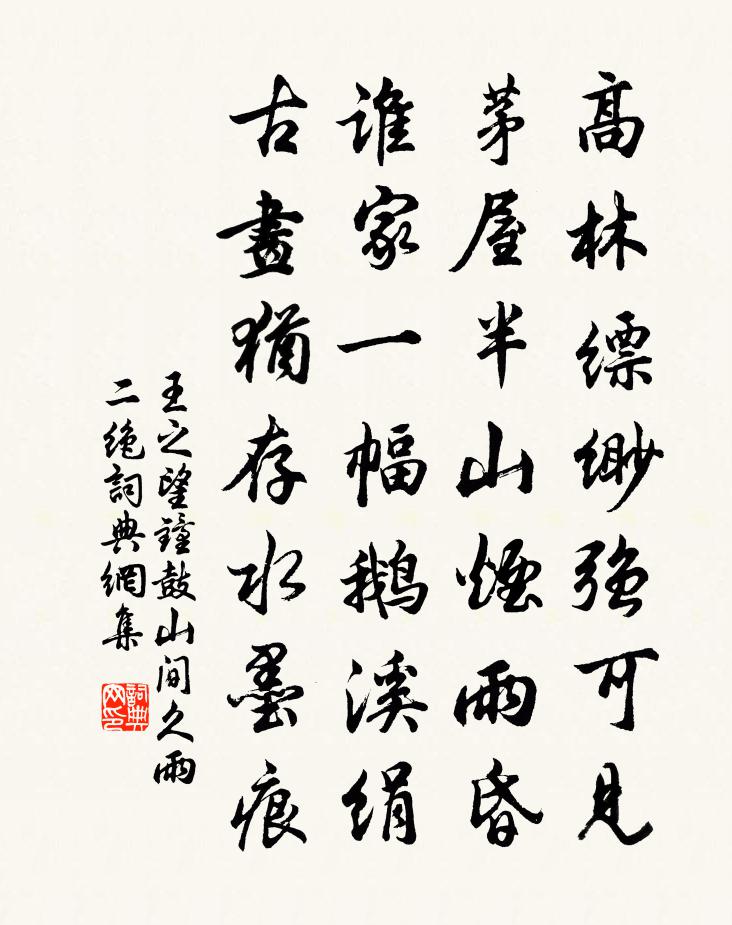 高林縹緲強可見
茅屋半山煙雨昏
誰家一幅鵝溪絹
古畫猶存水墨痕
王之望鐘鼓山间久雨
二绝詞典網集
詞典网印